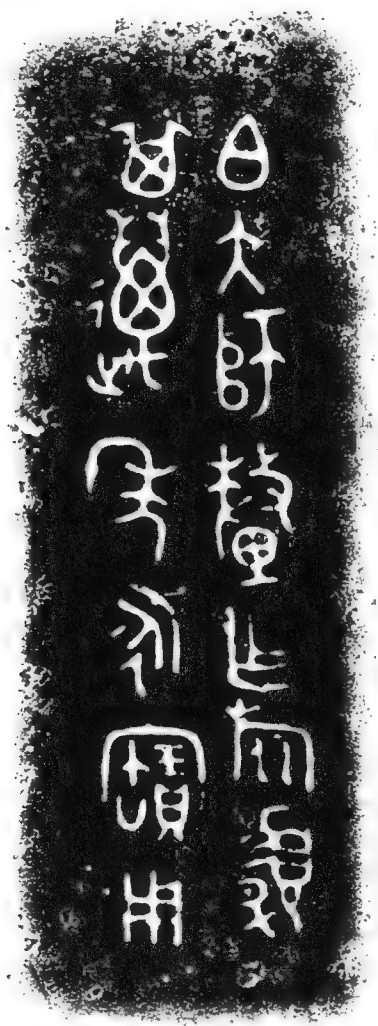 白大師釐乍旅盨
其邁年永寶用